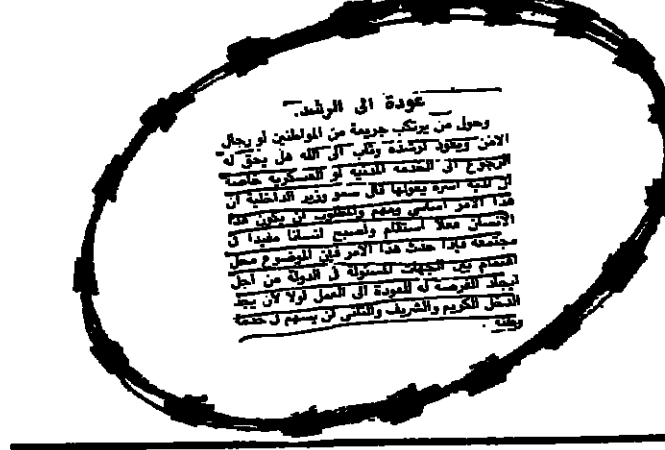 عودة الى الرشد.
وحول من يرتكب جريمة من المواطنين او رجال
الامن ويعود لرشده وتاب الى الله هل يحق له
الرجوع الى الخدمه المدنيه او العسكريه خاصة
ان لديه اسرة يعولها قال سمو وزير الداخلية ان
هذا الامر اساسي ومهم والمطلوب ان يكون هذا
الانسان فعلا استقام واصبح انسانا مفيدا في
مجتمعه فاذا حدث هذا الامر فإن الموضوع محل
اهتمام بين الجهات المسئولة في الدولة من اجل
ايجاد الفرصه له للعودة الى العمل اولا لان يجد
الدخل الكريم والشريف والثاني ان يسهم في خدمة
وطنه .